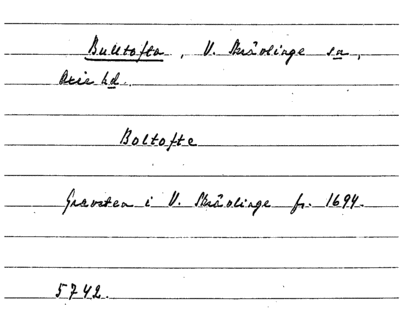 Bulltofta, V. Skrävlinge sn,
Oxie hd.
Boltofte
Gravsten i V. Skrävlinge fr. 1694.
5742.